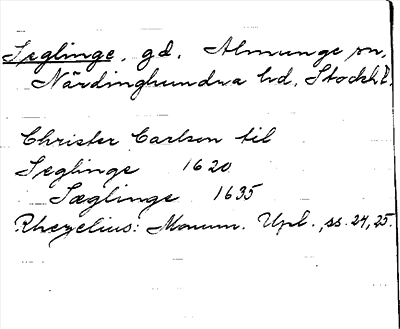 Seglinge, gd, Almunge sn,
Närdinghundra hd, Stockh. l.
Christer Carlson til
Seglinge 1620
Sæglinge 1635
Rhezelius: Monum. Upl. ss. 24, 25.